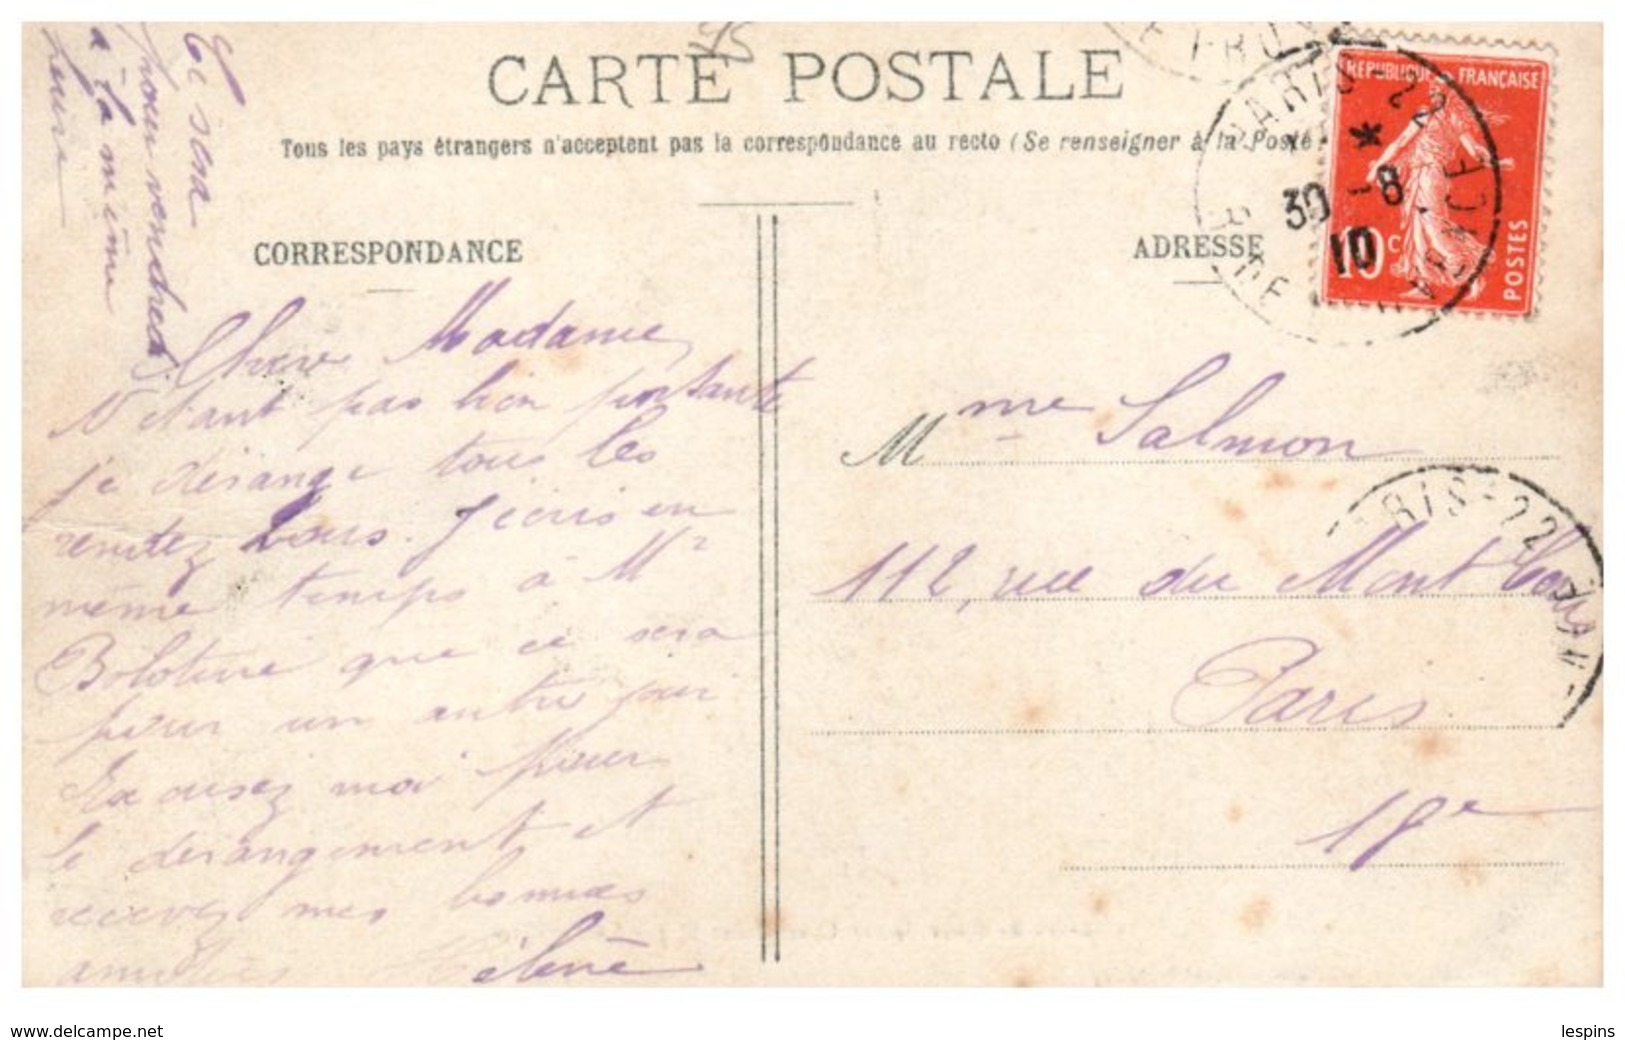 CARTE POSTALE
Tous les pays étrangers n'acceptent pas la correspondance au recto (Se renseigner à la Poste
CORRESPONDANCE
ADRESSE
REPUBLIQUE FRANÇAISE
10c
POSTES
PARIS-22
30-8
10
R. DE PROVENCE
Ce sera
pour vendredi
à la même
heure
Chère Madame
N'étant pas bien portante
je dérange tous les
rendez vous. J'écris en
même temps à Mr
que ce sera
pour un autre jour
Excusez moi pour
le dérangement et
recevez mes bonnes
amitiés Hélène
Mme Salmon
112, rue du Mont Cenis
Paris
18e
PARIS-22
www.delcampe.net
lespins